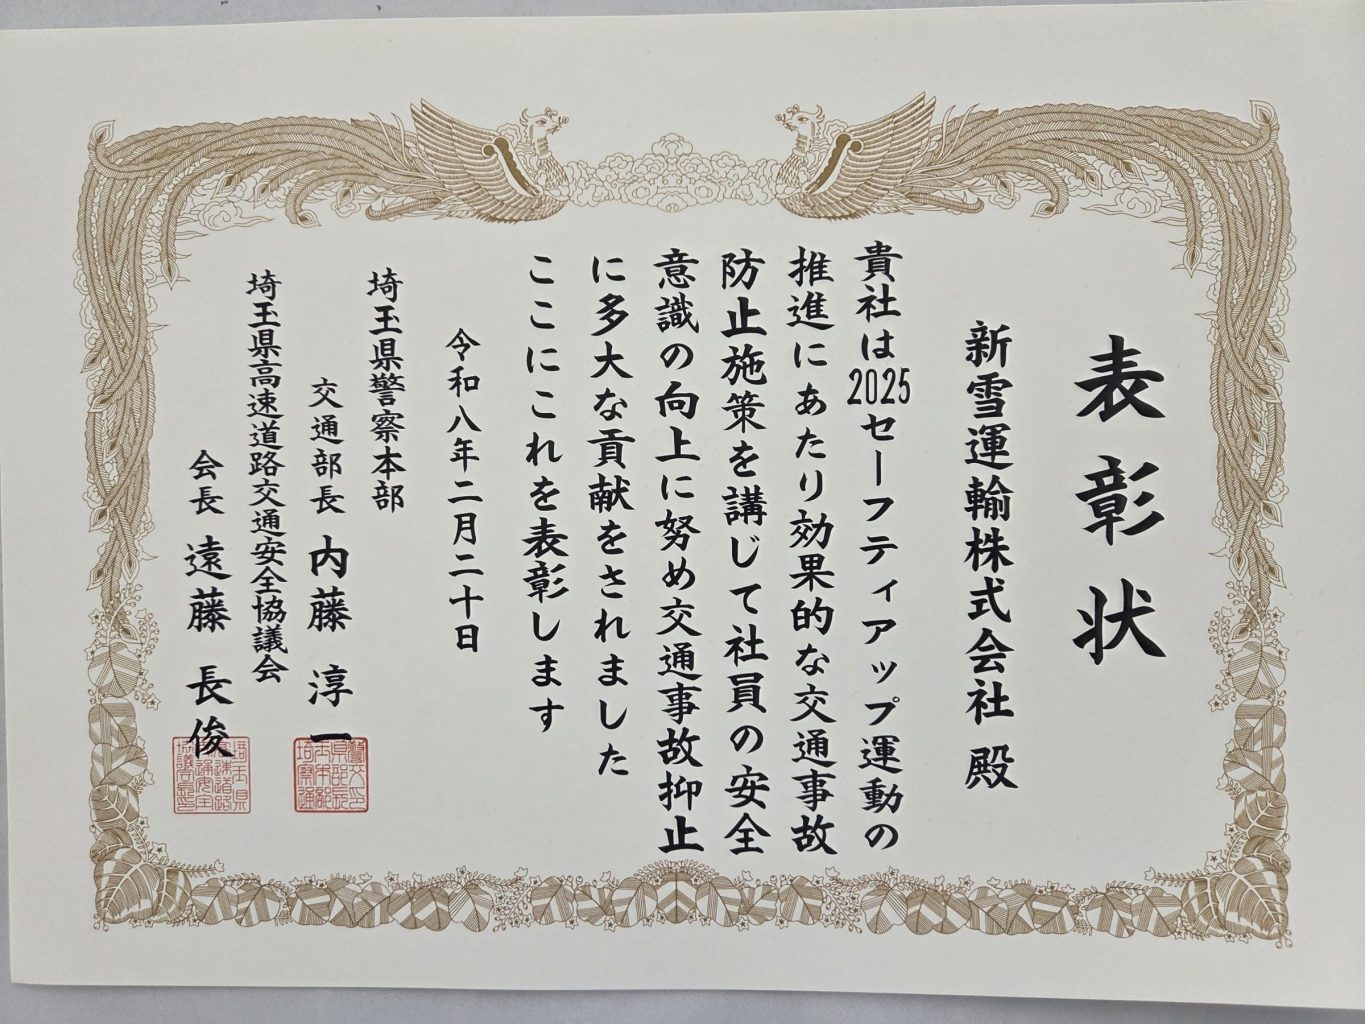 表彰状
新雪運輸株式会社 殿
貴社は2025セーフティアップ運動の
推進にあたり効果的な交通事故
防止施策を講じて社員の安全
意識の向上に努め交通事故抑止
に多大な貢献をされました
ここにこれを表彰します
令和八年二月二十日
埼玉県警察本部
交通部長 内藤 淳一
埼玉県高速道路交通安全協議会
会長 遠藤 長俊